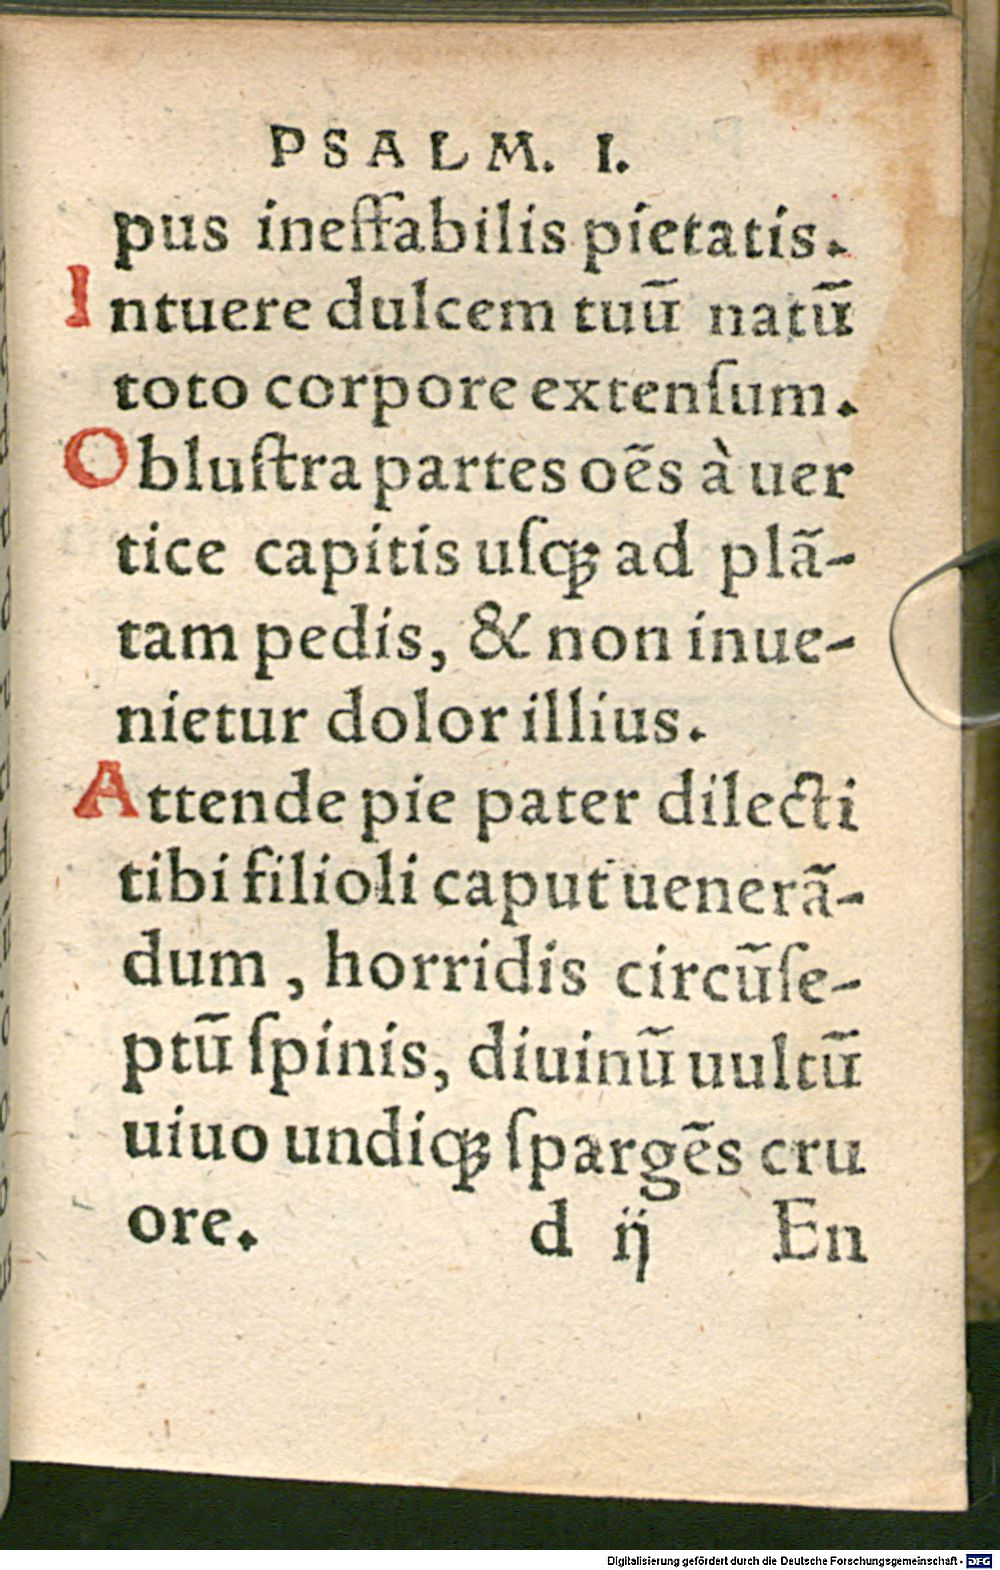 PSALM. I.
pus ineffabilis pietatis.
Intuere dulcem tuū natū
toto corpore extenſum.
Obluſtra partes oēs à uer
tice capitis uſqꝫ ad plã-
tam pedis, & non inue-
nietur dolor illius.
Attende pie pater dilecti
tibi filioli caput uenerã-
dum, horridis circūſe-
ptū ſpinis, diuinū uultū
uiuo undiqꝫ ſpargēs cru
ore. d ij En
Digitalisierung gefördert durch die Deutsche Forschungsgemeinschaft - DFG